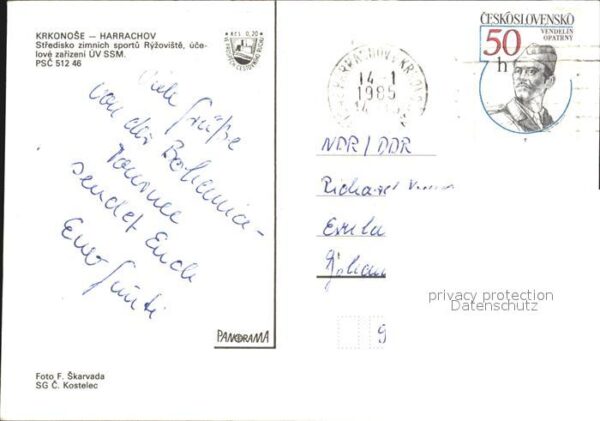 KRKONOŠE — HARRACHOV
Středisko zimních sportů Rýžoviště, úče-
lové zařízení ÚV SSM.
PSČ 512 46
Kčs 0,20
Viele Grüße
von der Bohemia-
Tournee
sendet Euch
Euer
PANORAMA
Foto F. Škarvada
SG Č. Kostelec
14.-1
1985
ČESKOSLOVENSKO
50
h
VENDELÍN
OPATRNÝ
NDR/DDR
Richard
9
privacy protection
Datenschutz